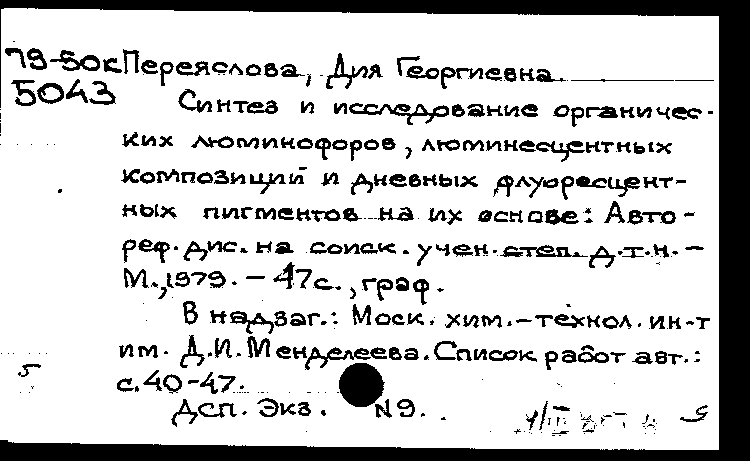 79-50к Переяслова, Дия Георгиевна.
5043 Синтез и исследование органичес-
ких люминофоров, люминесцентных
композиций и дневных флуоресцент-
ных пигментов на их основе: Авто-
реф. дис. на соиск. учен. степ. д.т.н. –
М., 1979. – 47с., граф.
В надзаг.: Моск. хим.-технол. ин-т
им. Д.И. Менделеева. Список работ авт.:
с. 40-47.
5
ДСП. Экз. №9.